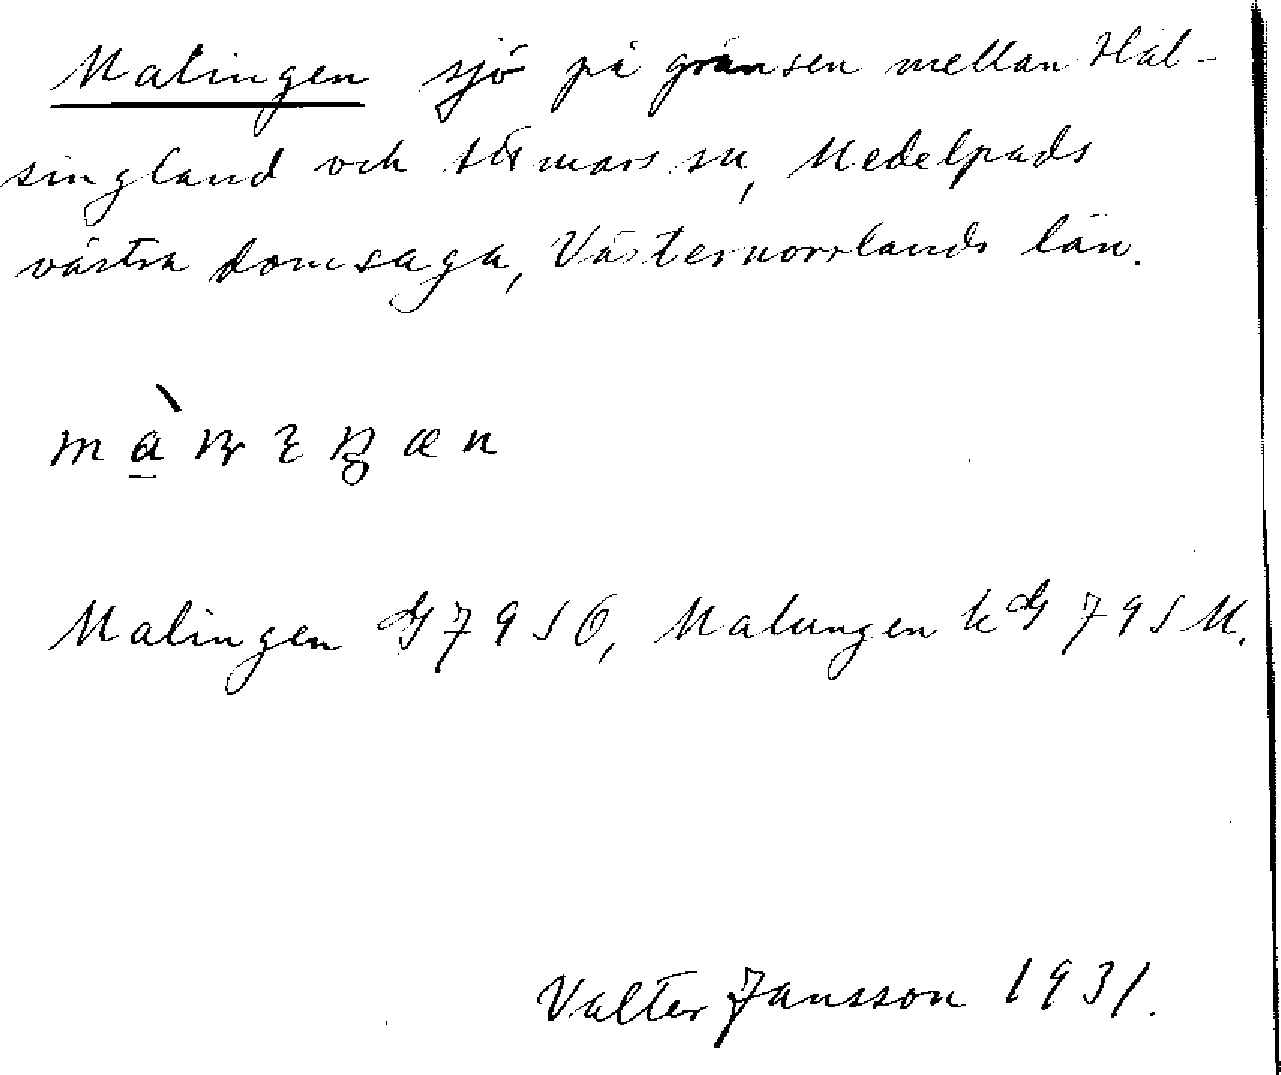 Malingen sjö på gränsen mellan Häl-
singland och Härmars sn, Medelpads
västra domsaga, Västernorrlands län.
Malingen G 79 S Ö, Malungen kG 79 S M.
Valter Jansson 1931.